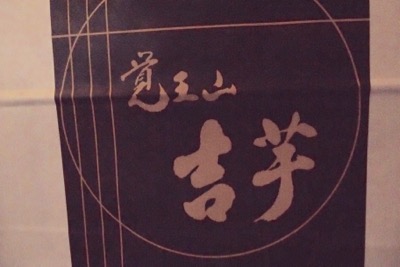 覚王山
吉芋